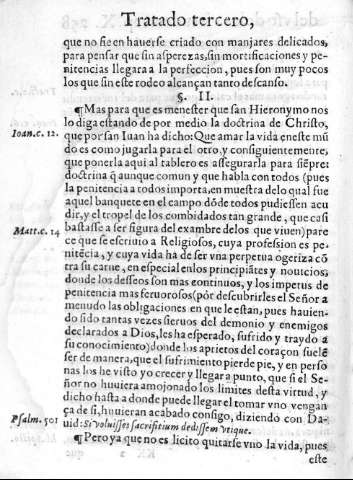 Tratado tercero,
que no fie en hauerse criado con manjares delicados,
para pensar que sin asperezas, sin mortificaciones y pe-
nitencias llegara a la perfeccion, pues son muy pocos
los que sin este rodeo alcançan tanto descanso.
§. II.
¶Mas para que es menester que san Hieronymo nos
lo diga estando de por medio la doctrina de Christo,
Ioan.c. 12.
que por san Iuan ha dicho: Que amar la vida eneste mũ
do es como jugarla para el otro, y consiguientemente,
que ponerla aqui al tablero es assegurarla para siẽpre:
doctrina q̃ aunque comun y que habla con todos (pues
la penitencia a todos importa, en muestra de lo qual fue
aquel banquete en el campo dõde todos pudiessen acu
dir, y el tropel de los combidados tan grande, que casi
bastasse a ser figura del exambre delos que viuen) pare
Matt.c. 14
ce que se escriuio a Religiosos, cuya profession es pe-
nitẽcia, y cuya vida ha de ser vna perpetua ogeriza cõ
tra su carne, en especial enlos principiãtes y nouicios,
donde los desseos son mas continuos, y los impetus de
penitencia mas feruorosos (por descubrirles el Señor a
menudo las obligaciones en que le estan, pues hauien-
do sido tantas vezes sieruos del demonio y enemigos
declarados a Dios, les ha esperado, sufrido y traydo a
su conocimiento) donde los aprietos del coraçon suelẽ
ser de manera, que el sufrimiento pierde pie, y en perso
nas los he visto yo crecer y llegar a punto, que si el Se-
ñor no huuiera amojonado los limites desta virtud, y
dicho hasta a donde puede llegar el tomar vno vengan
ça de si, huuieran acabado consigo, diziendo con Da-
Psalm. 501
uid: Si voluisses sacrificium dedissem vtique.
¶Pero ya que no es licito quitarse vno la vida, pues
este